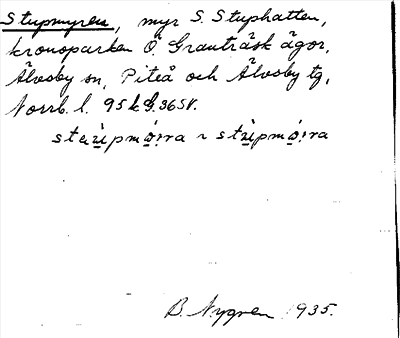 Stupmyren, myr S. Stuphatten,
kronoparken Ö. Granträsk ägor,
Älvsby sn, Piteå och Älvsby tg,
Norrb. l. 95 k G. 365V.
B. Nygren 1935.